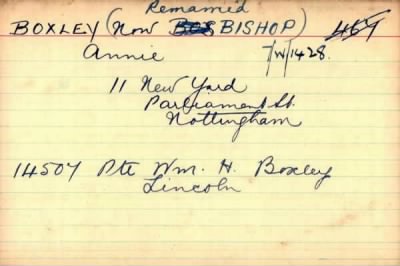 Remarried
BOXLEY (Now BISHOP) 467
Annie 7/W/1428.
11 New Yard
Parliament St.
Nottingham
14507 Pte Wm. H. Boxley
Lincoln